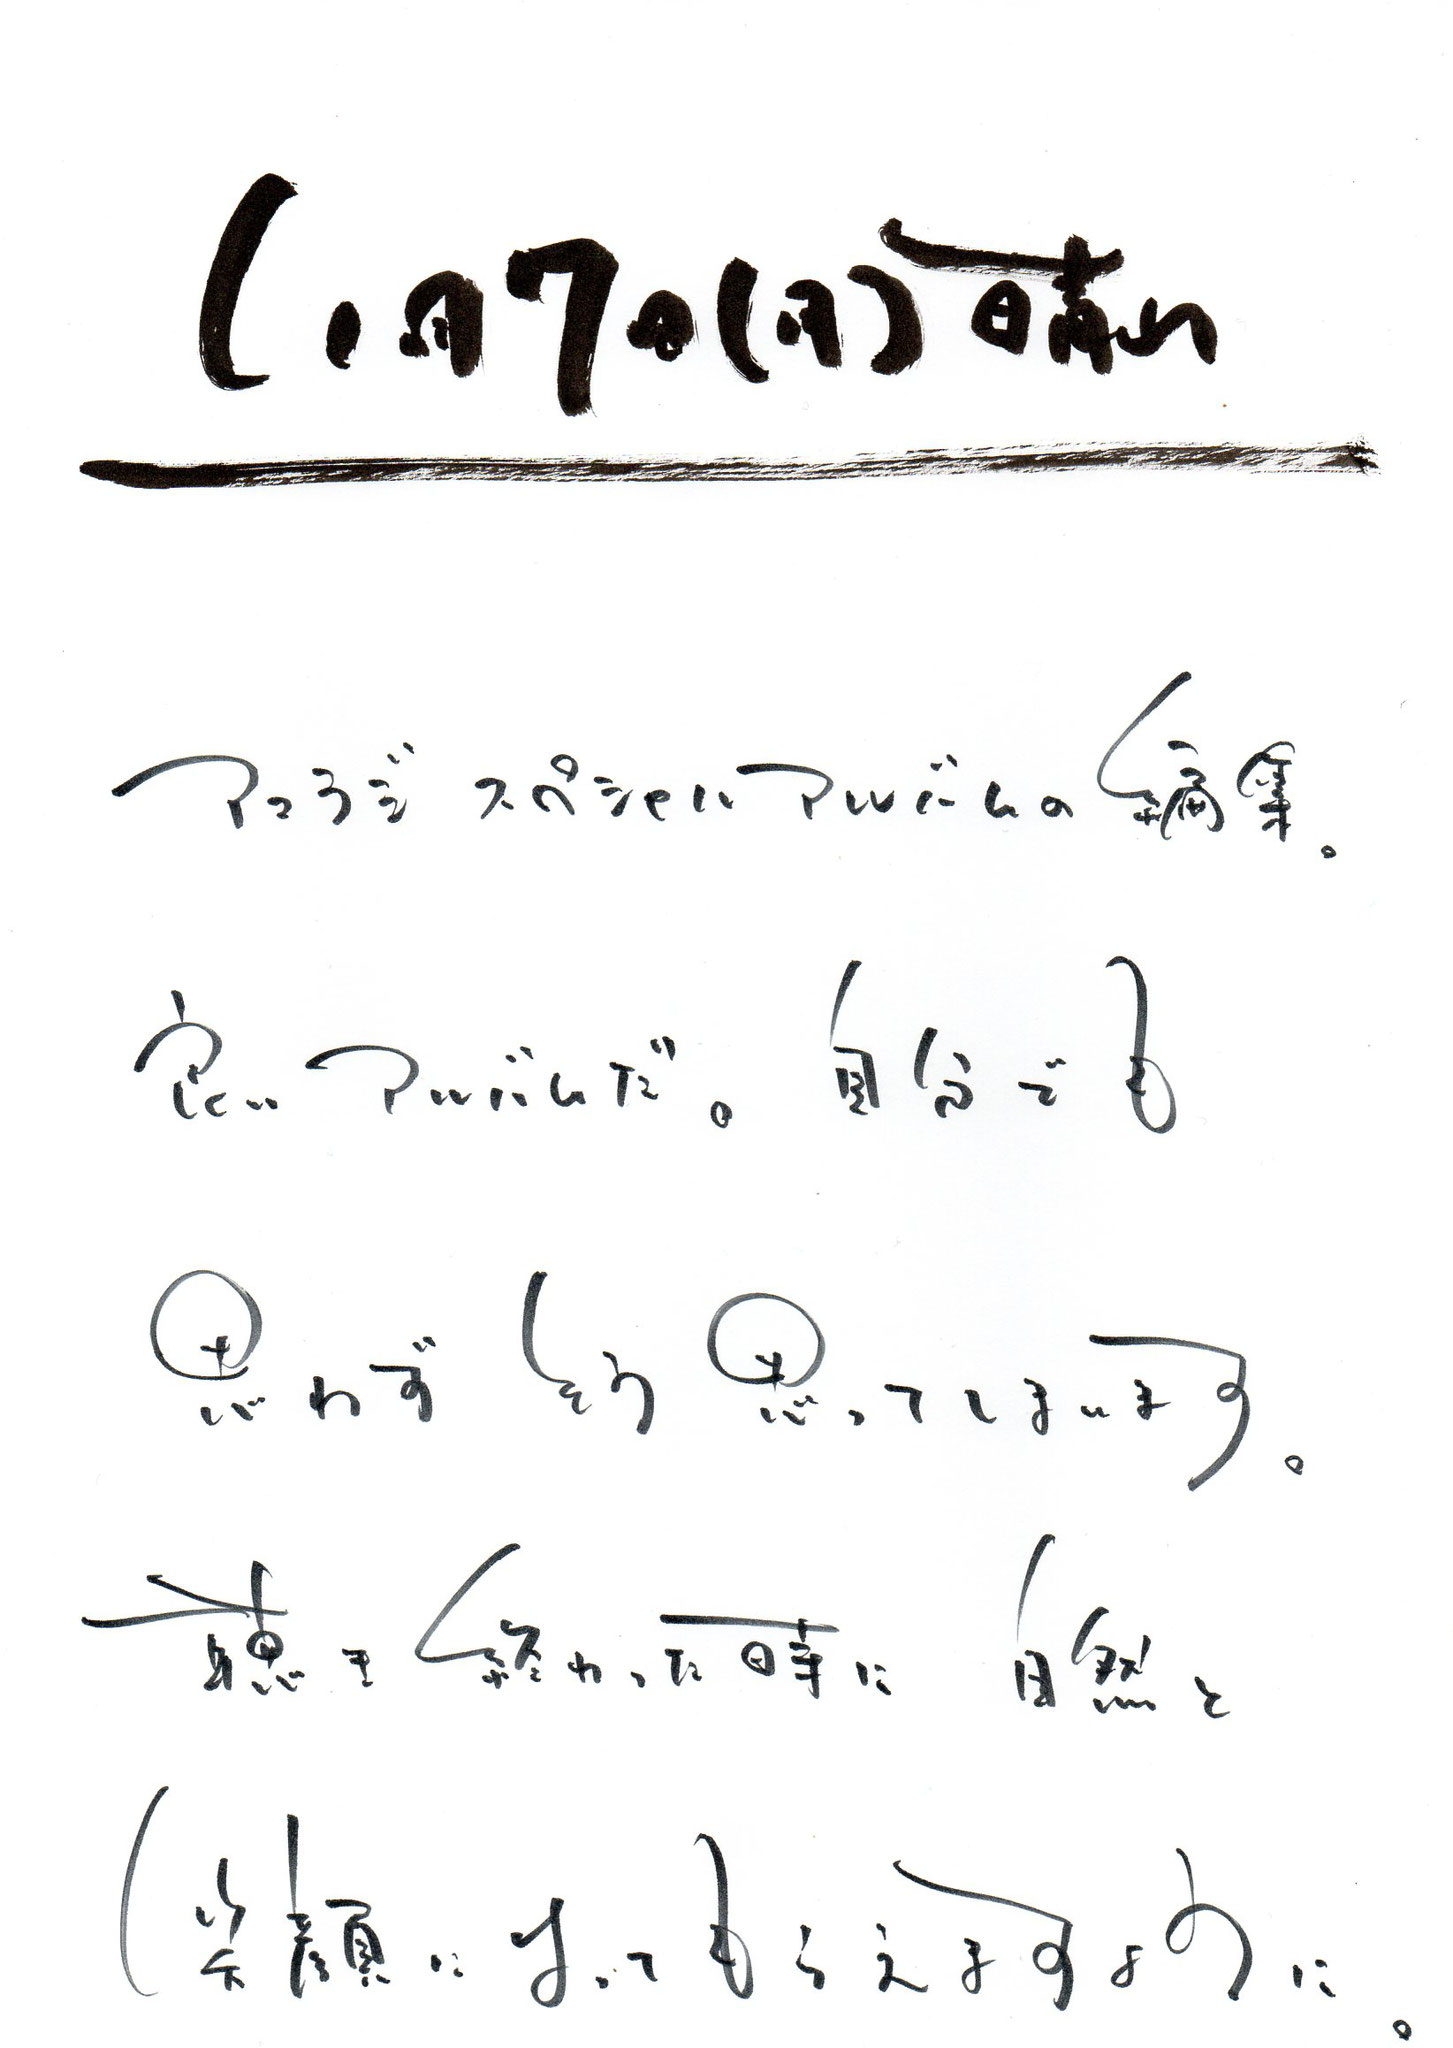 1月7日(月)晴れ
アコラジ スペシャルアルバムの編集。
良いアルバムだ。自分でも
思わず そう思ってしまいます。
聴き終わった時に 自然と
笑顔になってもらえますように。